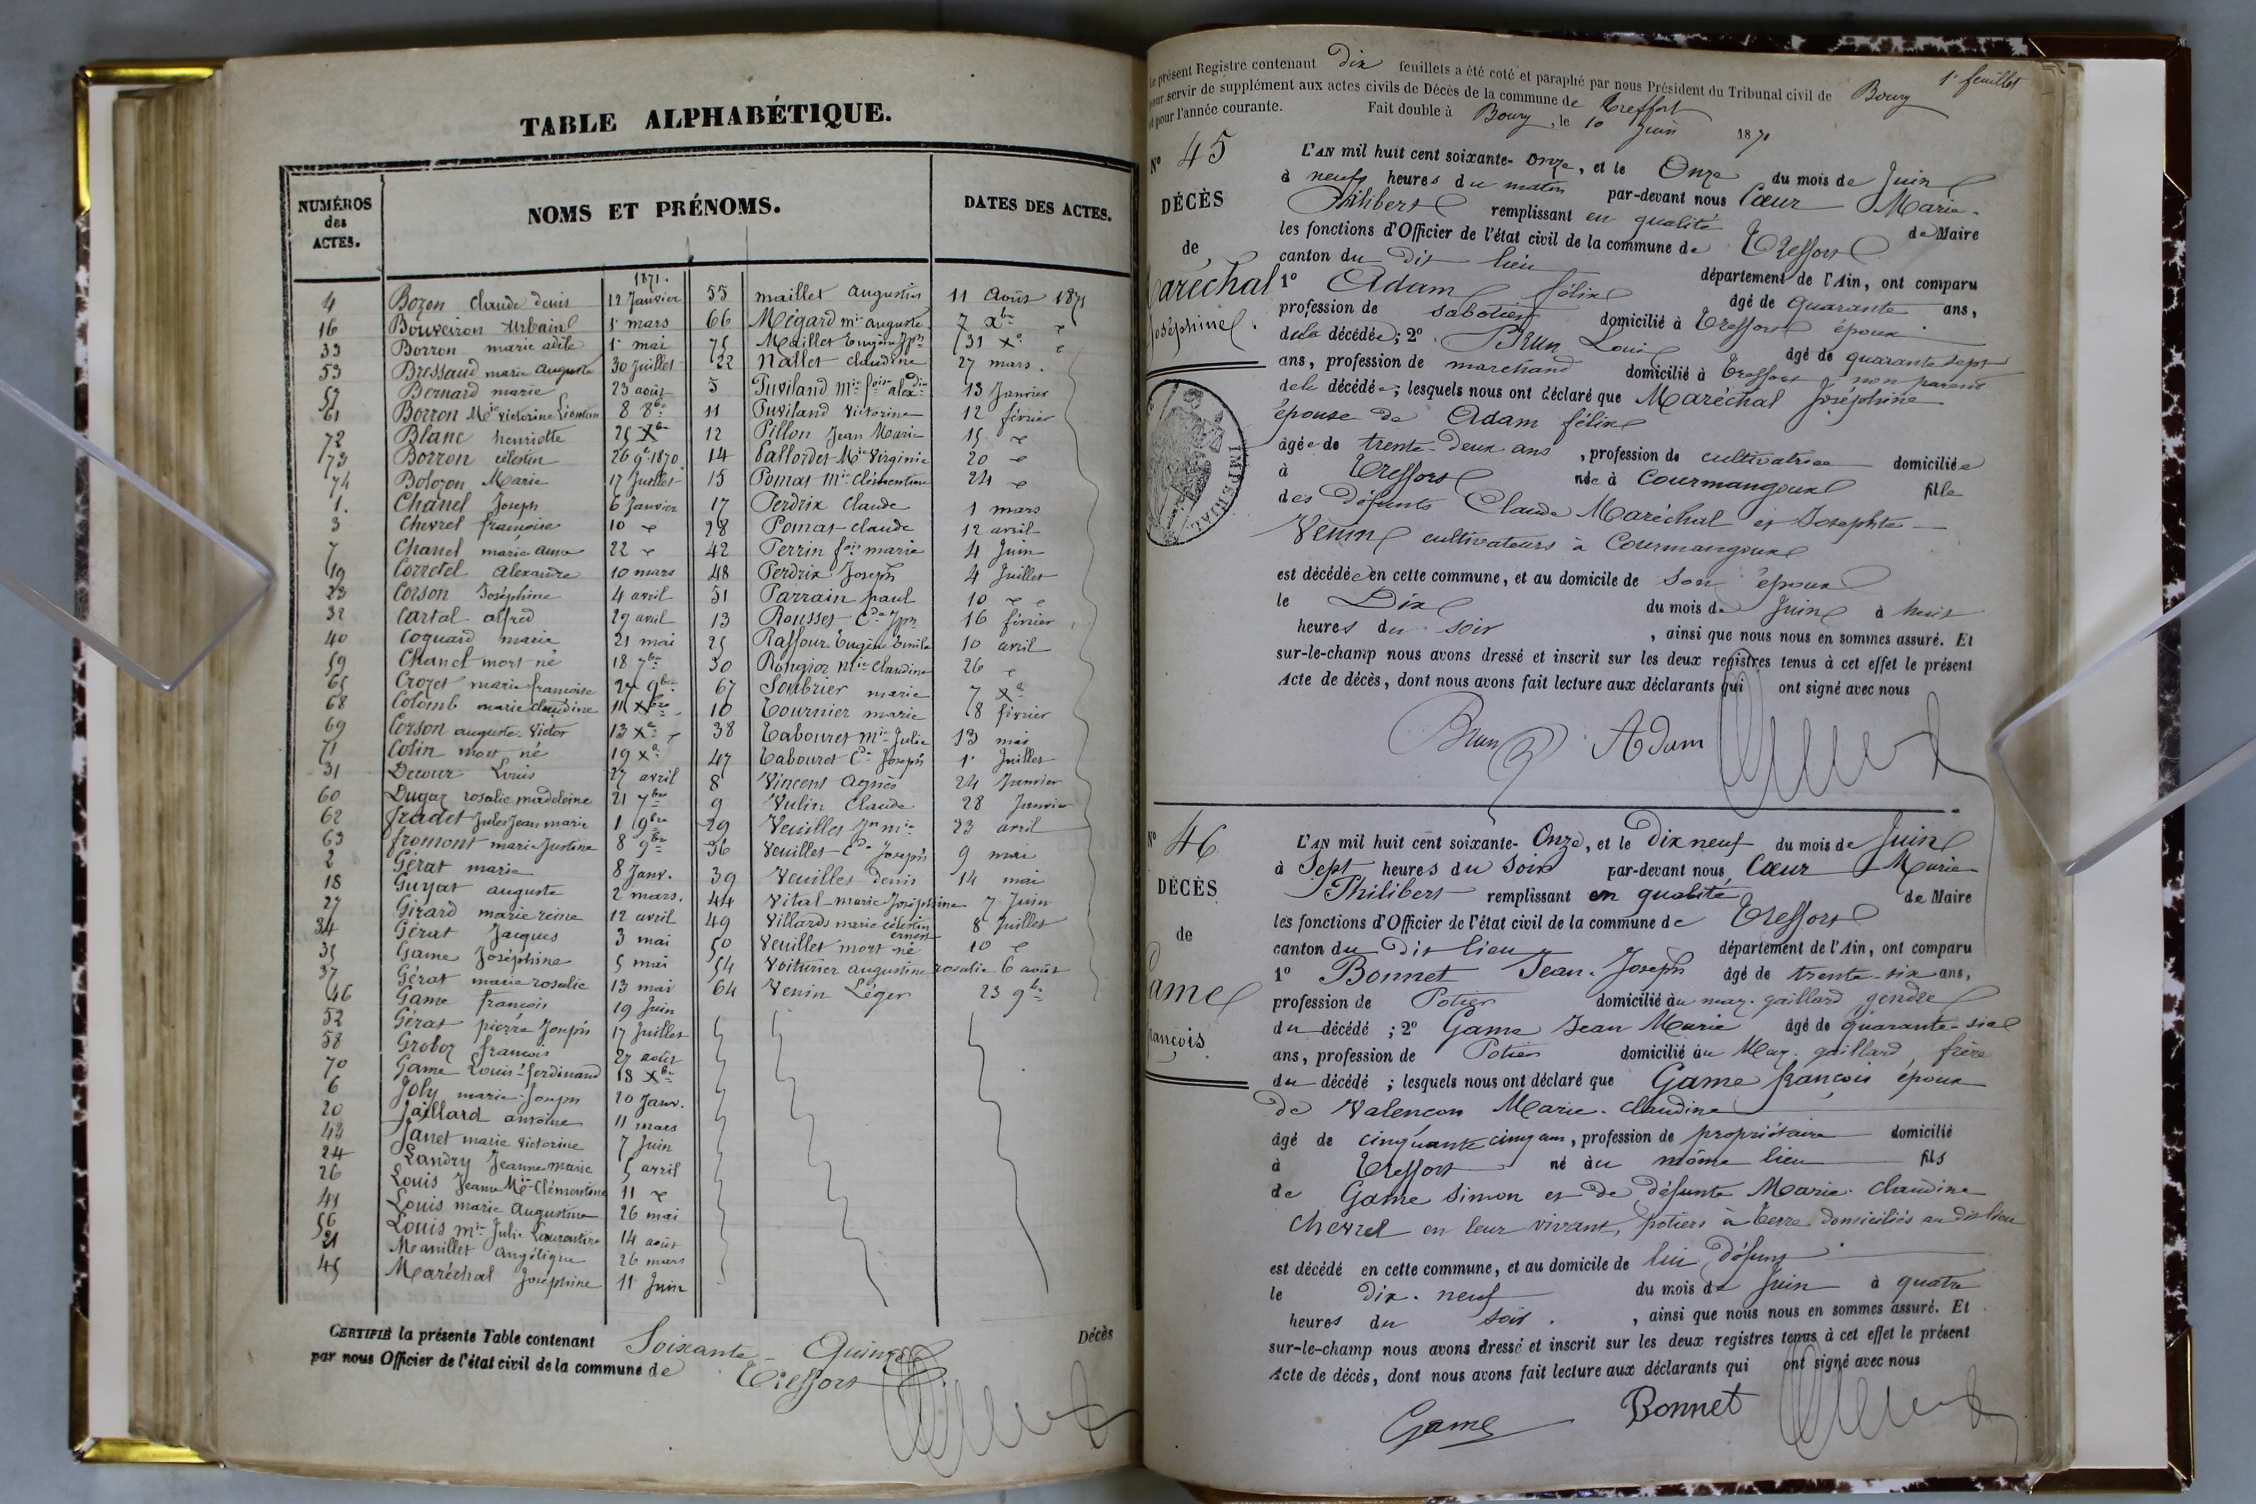 TABLE ALPHABÉTIQUE.
NUMÉROS des ACTES.
NOMS ET PRÉNOMS.
DATES DES ACTES.
1871.
4 Bozon Claude denis 12 Janvier
16 Bouveiron Urbain 1r mars
33 Borron marie adèle 1r mai
53 Bressaud marie Auguste 30 Juillet
57 Bernard marie 23 août
61 Borron Mie Victorine 8 8bre
72 Blanc henriette 25 Xbre
73 Borron célestin 26 9e 1870
74 Bolozon Marie 17 Juillet
1. Chanel Joseph 6 Janvier
3 Chevrel françoise 10
7 Chanel marie anne 22
19 Corretel alexandre 10 mars
23 Corson Joséphine 4 avril
32 Cartal alfred 29 avril
40 Coquard marie 21 mai
59 Chanel mort né 18 7bre
65 Crozet marie françoise 27 9bre
68 Colomb marie claudine 11 Xbre
69 Corson auguste Victor 13 Xe
71 Colin mort né 19 Xe
31 Decour Louis 27 avril
60 Dugaz rosalie madeleine 21 7bre
62 fradet Jules Jean marie 1 9bre
63 fromont marie Justine 8 9bre
2 Gérat marie 8 Janv.
18 Guyat auguste 2 mars.
27 Girard marie reine 12 avril
34 Gérat Jacques 3 mai
35 Game Joséphine 5 mai
37 Gérat marie rosalie 13 mai
46 Game françois 19 Juin
52 Gérat pierre Joseph 17 Juillet
58 Groboz françois 27 août
70 Game Louis ferdinand 18 Xbre
6 Joly marie Joseph 20 Janv.
20 Jaillard antoine 11 mars
43 Janet marie Victorine 7 Juin
24 Landry Jeanne marie 5 avril
26 Louis Jeanne Mie Clémentine 11
41 Louis marie Augustine 26 mai
56 Louis mie Julie Laurentine 14 août
21 Meanillet Angélique 26 mars
45 Maréchal Joséphine 11 Juin
55 maillet Augustin 11 Août 1871
66 Mégard mie auguste 7 Xbre
75 Maillet Eugène Jph 31 Xe
22 Nallet claudine 27 mars.
5 Puviland Mie foise 13 Janvier
11 Puviland Victorine 12 février
12 Pillon Jean Marie 15
14 Mie Virginie 20
15 Pomat Mie Clémentine 24
17 Perdrix Claude 1 mars
28 Pomat Claude 12 avril
42 Perrin foise marie 4 Juin
48 Perdrix Joseph 4 Juillet
51 Parrain paul 10
13 Rousset Cde Jph 16 février
25 Raffour Eugène Emile 10 avril
30 Rougioz Mie Claudine 26
67 Soubrier marie 7 Xe
10 Tournier marie 8 février
38 Tabouret Mie Julie 13 mai
47 Tabouret Cde Joseph 1r Juillet
8 Vincent Agnès 24 Janvier
9 Vulin Claude 28 Janvier
29 Veuillet Jn mie 23 avril
36 Veuillet Cde Joseph 9 mai
39 Veuillet denis 14 mai
44 Vital marie Joséphine 7 Juin
49 Villard marie célestin ernest 8 Juillet
50 Veuillet mort né 10
54 Voiturier augustine rosalie 6 août
64 Venin Léger 23 9bre
CERTIFIÉ la présente Table contenant Soixante Quinze Décès
par nous Officier de l'état civil de la commune de Treffort
1r feuillet
Le présent Registre contenant dix feuillets a été coté et paraphé par nous Président du Tribunal civil de Bourg
pour servir de supplément aux actes civils de Décès de la commune de Treffort
et pour l'année courante. Fait double à Bourg, le 10 Juin 1871
No 45
DÉCÈS
de
Maréchal
Joséphine.
IMPÉRIAL
L'AN mil huit cent soixante-Onze, et le Onze du mois de Juin
à neuf heures du matin par-devant nous Cœur Marie-
Philibert remplissant en qualité de Maire
les fonctions d'Officier de l'état civil de la commune de Treffort
canton du dit lieu département de l'Ain, ont comparu
1o Adam félix âgé de quarante ans,
profession de sabotier domicilié à Treffort époux
de la décédée; 2o Brun Louis âgé de quarante sept
ans, profession de marchand domicilié à Treffort non parent
de la décédée; lesquels nous ont déclaré que Maréchal Joséphine
épouse de Adam félix
âgée de trente-deux ans, profession de cultivatrice domiciliée
à Treffort née à Courmangoux fille
des défunts Claude Maréchal et Josephte
Venin cultivateurs à Courmangoux
est décédée en cette commune, et au domicile de son époux
le Dix du mois de Juin à huit
heures du soir, ainsi que nous nous en sommes assuré. Et
sur-le-champ nous avons dressé et inscrit sur les deux registres tenus à cet effet le présent
Acte de décès, dont nous avons fait lecture aux déclarants qui ont signé avec nous
Brun Adam
No 46
DÉCÈS
de
Game
François.
L'AN mil huit cent soixante-Onze, et le Dix neuf du mois de Juin
à Sept heures du Soir par-devant nous Cœur Marie
Philibert remplissant en qualité de Maire
les fonctions d'Officier de l'état civil de la commune de Treffort
canton du Dit lieu département de l'Ain, ont comparu
1o Bonnet Jean-Joseph âgé de trente-six ans,
profession de Potier domicilié au maz. gaillard gendre
du décédé; 2o Game Jean Marie âgé de quarante-six
ans, profession de Potier domicilié au Maz. gaillard, frère
du décédé; lesquels nous ont déclaré que Game françois époux
de Valençon Marie-Claudine
âgé de cinquante cinq ans, profession de propriétaire domicilié
à Treffort né au même lieu fils
de Game Simon et de défunte Marie Claudine
Chevrel en leur vivant, potiers à terre domiciliés au dit lieu
est décédé en cette commune, et au domicile de lui défunt
le dix-neuf du mois de Juin à quatre
heures du soir, ainsi que nous nous en sommes assuré. Et
sur-le-champ nous avons dressé et inscrit sur les deux registres tenus à cet effet le présent
Acte de décès, dont nous avons fait lecture aux déclarants qui ont signé avec nous
Game Bonnet